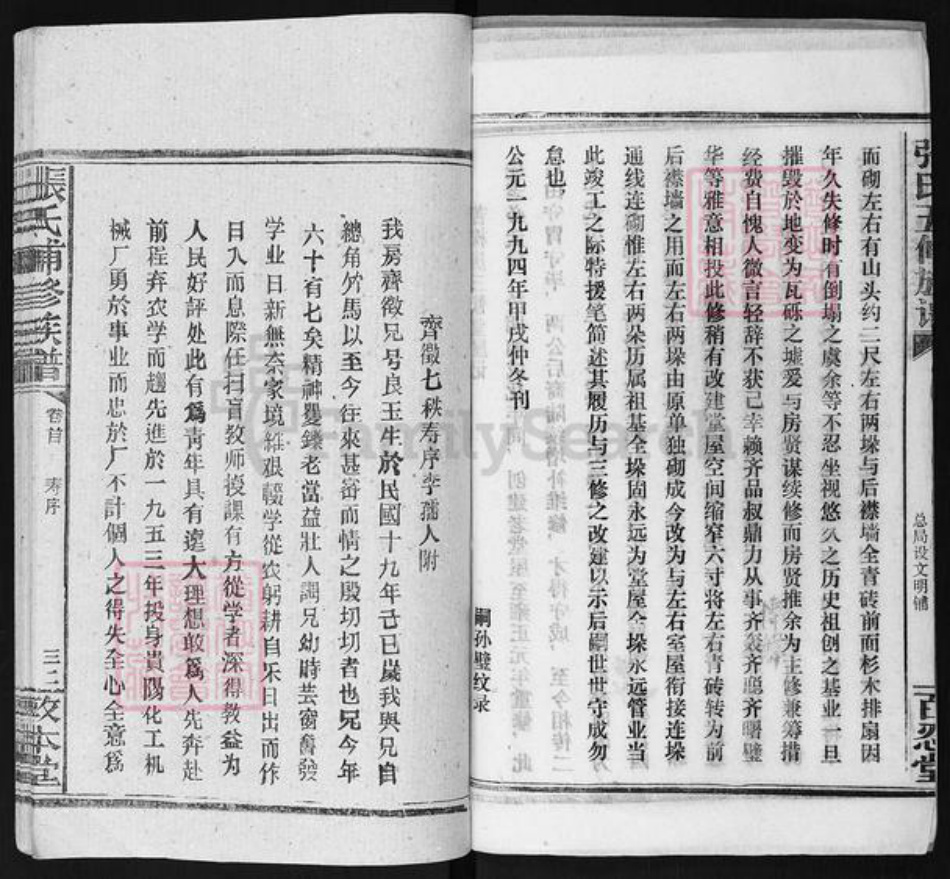 张氏五修族谱
总局设文明铺
百忍堂
而砌左右有山头约二尺左右两垛与后襟墙全青砖前面杉木排扇因
年久失修时有倒塌之虞余等不忍坐视悠久之历史祖创之基业一旦
摧毁於地变为瓦砾之墟爰与房贤谋续修而房贤推余为主修兼筹措
经费自愧人微言轻辞不获己幸赖齐品叔鼎力从事齐衮齐聪齐曙璧
华等雅意相投此修稍有改建堂屋空间缩窄六寸将左右青砖转为前
后襟墙之用面左右两垛由原单独砌成今改为与左右室屋衔接连垛
通线连砌惟左右两朵历属祖基全垛固永远为堂屋仝垛永远管业当
此竣工之际特援笔简述其履历与三修之改建以示后嗣世世守成勿
怠也
嗣孙璧纹录
公元一九九四年甲戌仲冬刊
齊徵七秩寿序李孺人附
我房齊徵兄号良玉生於民國十九年己巳歲我與兄自
總角竹馬以至今往來甚密而情之殷切切者也兄今年
六十有七矣精神矍鑠老當益壯人謂兄幼時芸窗奮發
学业日新無奈家境維艰輟学從农躬耕自乐日出而作
日入而息際任扫盲教师授課有方從学者深得教益为
人民好評处此有爲青年具有遠大理想敢爲人先奔赴
前程弃农学而趨先進於一九五三年投身貴陽化工机
械厂勇於事业而忠於厂不計個人之得失全心全意爲
張氏補修族譜
卷首
寿序
三三
敦本堂
FamilySearch